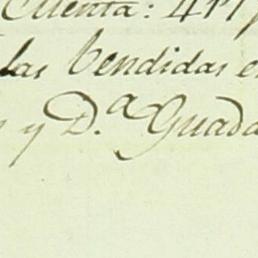 Cuenta: 417
las Vendidas e
y D.ª Guada